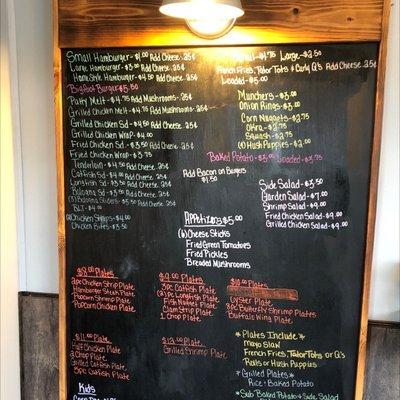 Small Hamburger - $4.00 Add Cheese .25¢
Large Hamburger - $5.00 Add Cheese .25¢
Home Style Hamburger - $4.50 Add Cheese .25¢
Bigfoot Burger $5.50
Patty Melt - $4.75 Add Mushrooms - .25¢
Grilled Chicken Melt - $4.75 Add Mushrooms - .25¢
Grilled Chicken Sd - $4.50 Add Cheese .25¢
Grilled Chicken Wrap - $4.00
Fried Chicken Sd - $3.50 Add Cheese .25¢
Fried Chicken Wrap - $3.75
Tenderloin - $4.50 Add Cheese .25¢
Catfish Sd - $4.00 Add Cheese .25¢
Longfish Sd - $3.50 Add Cheese .25¢
Bologna Sd - $3.50 Add Cheese .25¢
Bologna Sliders - $5.50 Add Cheese .25¢
BLT - $4.00
Chicken Strips - $4.00
Chicken Bites - $3.50
Small - $1.75 Large - $2.50
French Fries, Tator Tots & Curly Q's Add Cheese .25¢
Loaded - $5.00
Munchers - $3.00
Onion Rings - $3.00
Corn Nuggets - $2.75
Okra - $2.75
Squash - $2.75
Hush Puppies - $2.00
Baked Potato - $3.00 Loaded - $3.75
Add Bacon on Burgers
$1.50
Side Salad - $3.50
Garden Salad - $7.00
Shrimp Salad - $9.00
Fried Chicken Salad - $9.00
Grilled Chicken Salad - $9.00
Appetizers $5.00
(6) Cheese Sticks
Fried Green Tomatoes
Fried Pickles
Breaded Mushrooms
$8.00 Plates
3pc Chicken Strip Plate
Hamburger Steak Plate
Popcorn Shrimp Plate
Popcorn Chicken Plate
$9.00 Plates
3pc Catfish Plate
(2)pc Longfish Plate
Fish Nugget Plate
Clam Strip Plate
1 Chop Plate
Oyster Plate
3pc Butterfly Shrimp Plates
Buffalo Wing Plate
$11.00 Plate
Half Chicken Plate
2 Chop Plate
Grilled Catfish Plate
5pc Catfish Plate
$12.00 Plate
Grilled Shrimp Plate
*Plates Include*
Mayo Slaw
French Fries, Tator Tots or Q's
Rolls or Hush Puppies
*Grilled Plates*
Rice or Baked Potato
*Sub Baked Potato & Side Salad
Kids